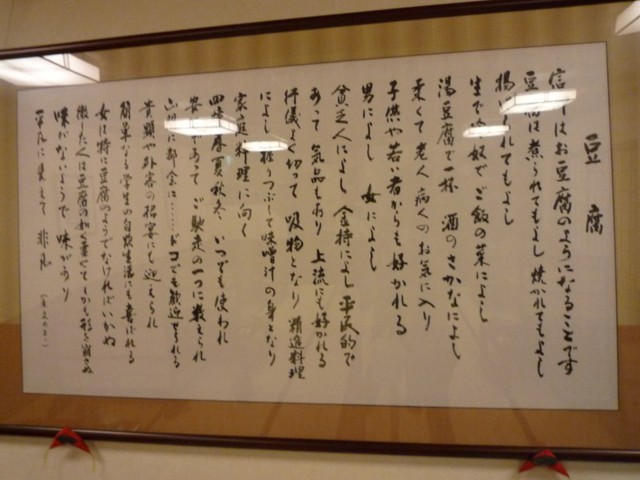 豆腐
信仰はお豆腐のようになることです
豆腐は煮られてもよし 焼かれてもよし
揚げられてもよし
生で冷奴でご飯の菜によし
湯豆腐で一杯 酒のさかなによし
柔くて老人 病人のお気に入り
子供や若い者からも好かれる
男によし 女によし
貧乏人によし 金持によし 平民的で
あって気品もあり 上流にも好かれる
行儀よく切って 吸物となり 精進料理
によし 握りつぶして味噌汁の身となり
家庭料理に向く
四季春夏秋冬 いつでも使われ
安価であって ご馳走の一つに数えられ
山川に都会に……ドコでも歓迎せられる
貴顕や外客の招宴にも迎えられ
簡単なる学生の自炊生活にも喜ばれる
女は特に豆腐のようでなければいかぬ
徹した人は豆腐の如く煮てもかも形を崩さぬ
味がないようで 味があり
平凡に見えて 非凡